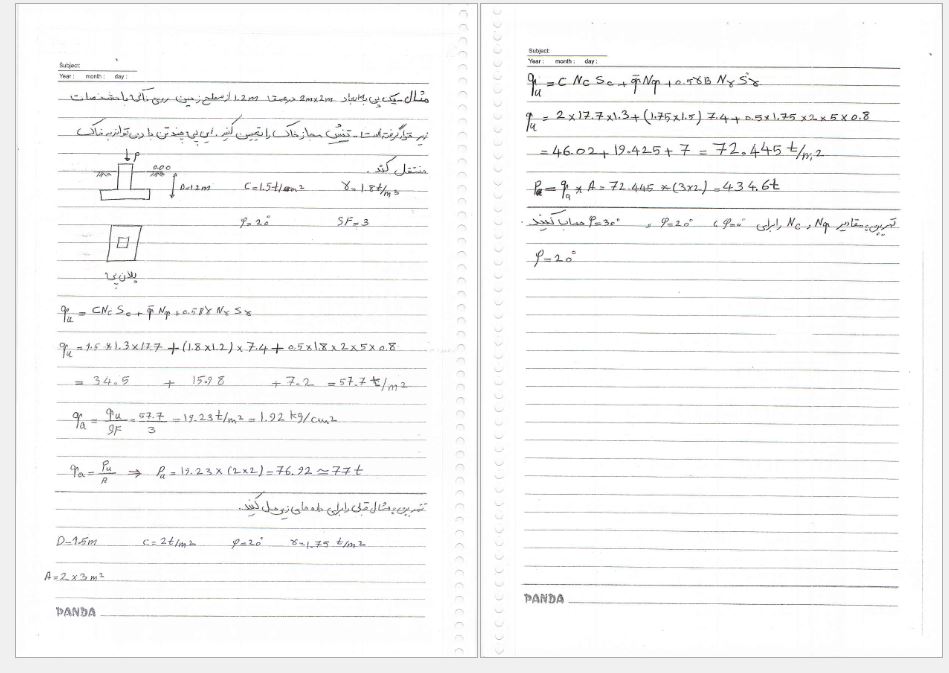 Subject:
Year : month : day :
مثال - یک پی به ابعاد 2m×2m در عمق 1.2m از سطح زمین بر روی خاک با مشخصات
زیر قرار گرفته است - تنش مجاز خاک را تعیین کنید. این پی چند تن بار می‌تواند به خاک
منتقل کند.
P
D=1.2m C=1.5t/m² γ=1.8t/m³
φ=20° SF=3
پلان پی
qu = CNcSc + q̄Nq + 0.5Bγ Nγ Sγ
qu = 1.5×1.3×17.7 + (1.8×1.2)×7.4 + 0.5×1.8×2×5×0.8
= 34.5 + 15.98 + 7.2 = 57.7 t/m²
qa = qu/SF = 57.7/3 = 19.23t/m² = 1.92 kg/cm²
qa = Pu/A ⇒ Pa = 19.23×(2×2) = 76.92 ≃ 77t
تمرین: مثال قبلی را برای داده‌های زیر حل کنید.
D=1.5m C=2t/m² φ=20° γ=1.75 t/m²
A=2×3m²
PANDA
Subject:
Year : month : day :
qu = C Nc Sc + q̄Nq + 0.5γB Nγ Sγ
qu = 2×17.7×1.3 + (1.75×1.5) 7.4 + 0.5×1.75×2×5×0.8
= 46.02 + 19.425 + 7 = 72.445 t/m²
Pa = qa × A = 72.445 × (3×2) = 434.6t
تمرین: مقادیر Nq و Nc را برای φ=0° ، φ=20° ، φ=30° حساب کنید.
φ=20°
PANDA